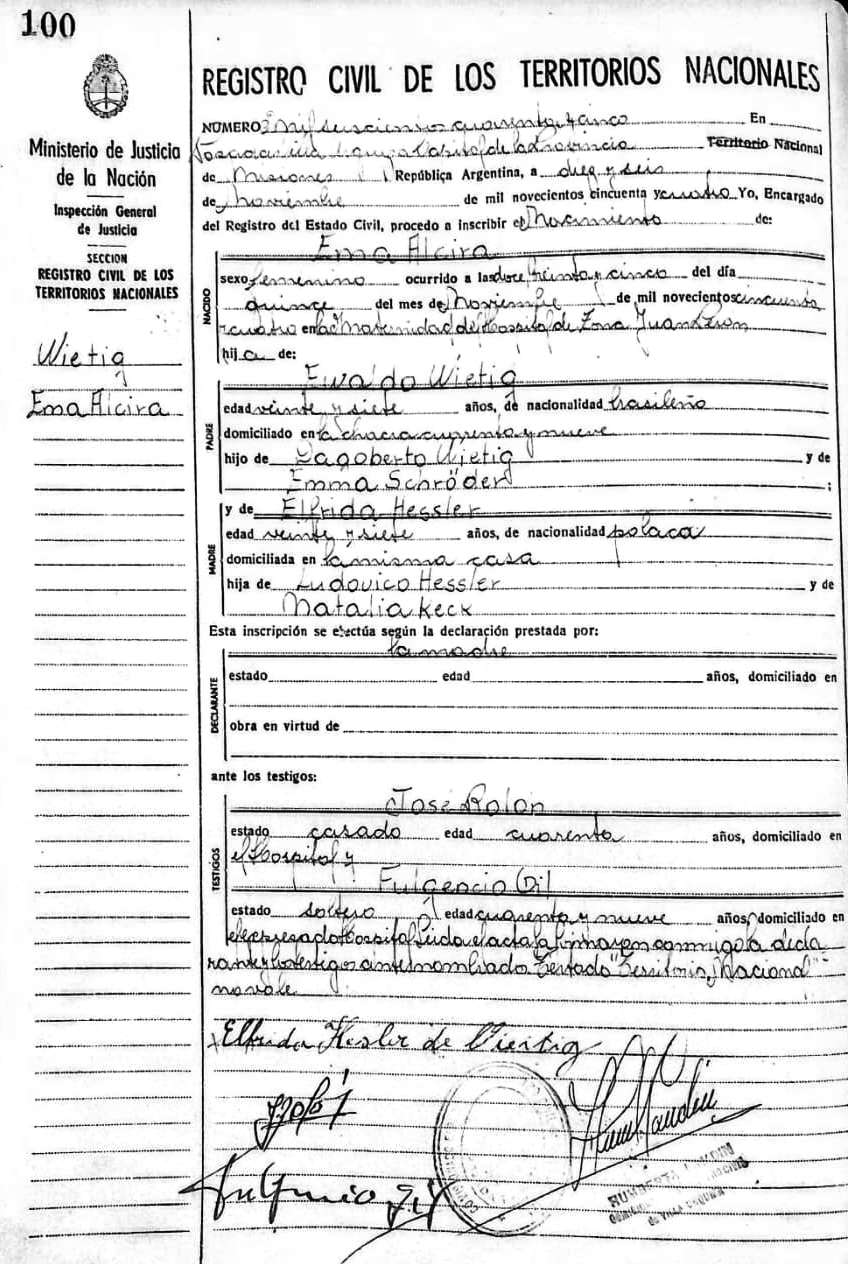 100
Ministerio de Justicia
de la Nación
Inspección General
de Justicia
SECCION
REGISTRO CIVIL DE LOS
TERRITORIOS NACIONALES
Wietig
Ema Alcira
REGISTRO CIVIL DE LOS TERRITORIOS NACIONALES
NUMERO mil seiscientos cuarenta y cinco En
Posadas Capital de la Provincia Territorio Nacional
de Misiones República Argentina, a diez y seis
de Noviembre de mil novecientos cincuenta y cuatro Yo, Encargado
del Registro del Estado Civil, procedo a inscribir el Nacimiento de:
Ema Alcira
NACIDO
sexo femenino ocurrido a las doce treinta y cinco del día
quince del mes de Noviembre de mil novecientos cincuenta
y cuatro en la Maternidad del Hospital de Zona Juan Peron
hija de:
PADRE
Ewaldo Wietig
edad veinte y siete años, de nacionalidad brasileño
domiciliado en la chacra cuarenta y nueve
hijo de Dagoberto Wietig y de
Emma Schröder ;
MADRE
y de Elfrida Hessler
edad veinte y siete años, de nacionalidad polaca
domiciliada en la misma casa
hija de Ludovico Hessler y de
Natalia Keck
Esta inscripción se efectúa según la declaración prestada por:
la madre
DECLARANTE
estado edad años, domiciliado en
obra en virtud de
ante los testigos:
TESTIGOS
José Rolon
estado casado edad cuarenta años, domiciliado en
el Hospital y
Fulgencio Gil
estado soltero edad cuarenta y nueve años, domiciliado en
el expresado Hospital Leida el acta la firmaron conmigo la decla
rante y los testigos antes nombrados Testado "Territorio, Nacional"
no vale
Elfrida Hesler de Viertig
Fulgencio Gil